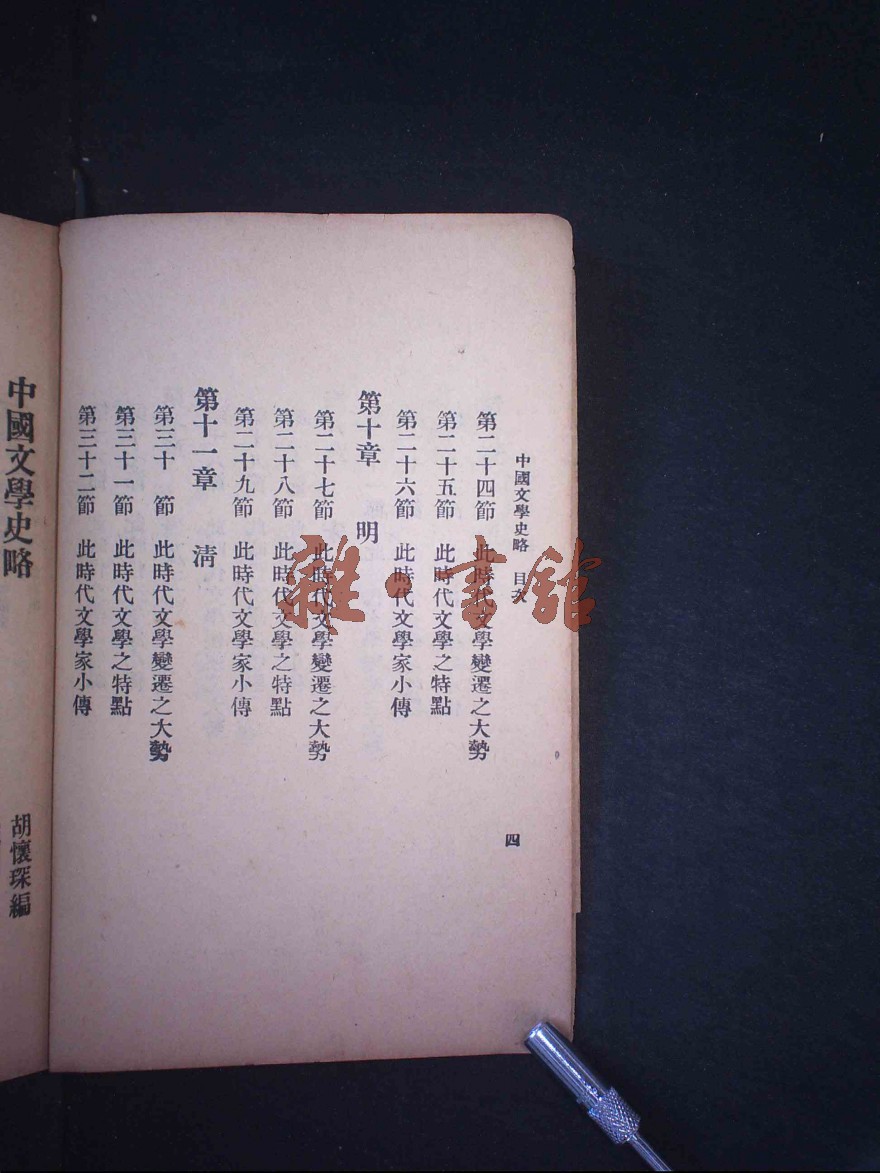 中國文學史略　目次
四
第二十四節　此時代文學變遷之大勢
第二十五節　此時代文學之特點
第二十六節　此時代文學家小傳
第十章　明
第二十七節　此時代文學變遷之大勢
第二十八節　此時代文學之特點
第二十九節　此時代文學家小傳
第十一章　清
第三十　節　此時代文學變遷之大勢
第三十一節　此時代文學之特點
第三十二節　此時代文學家小傳
中國文學史略
胡懷琛編
雜·書館